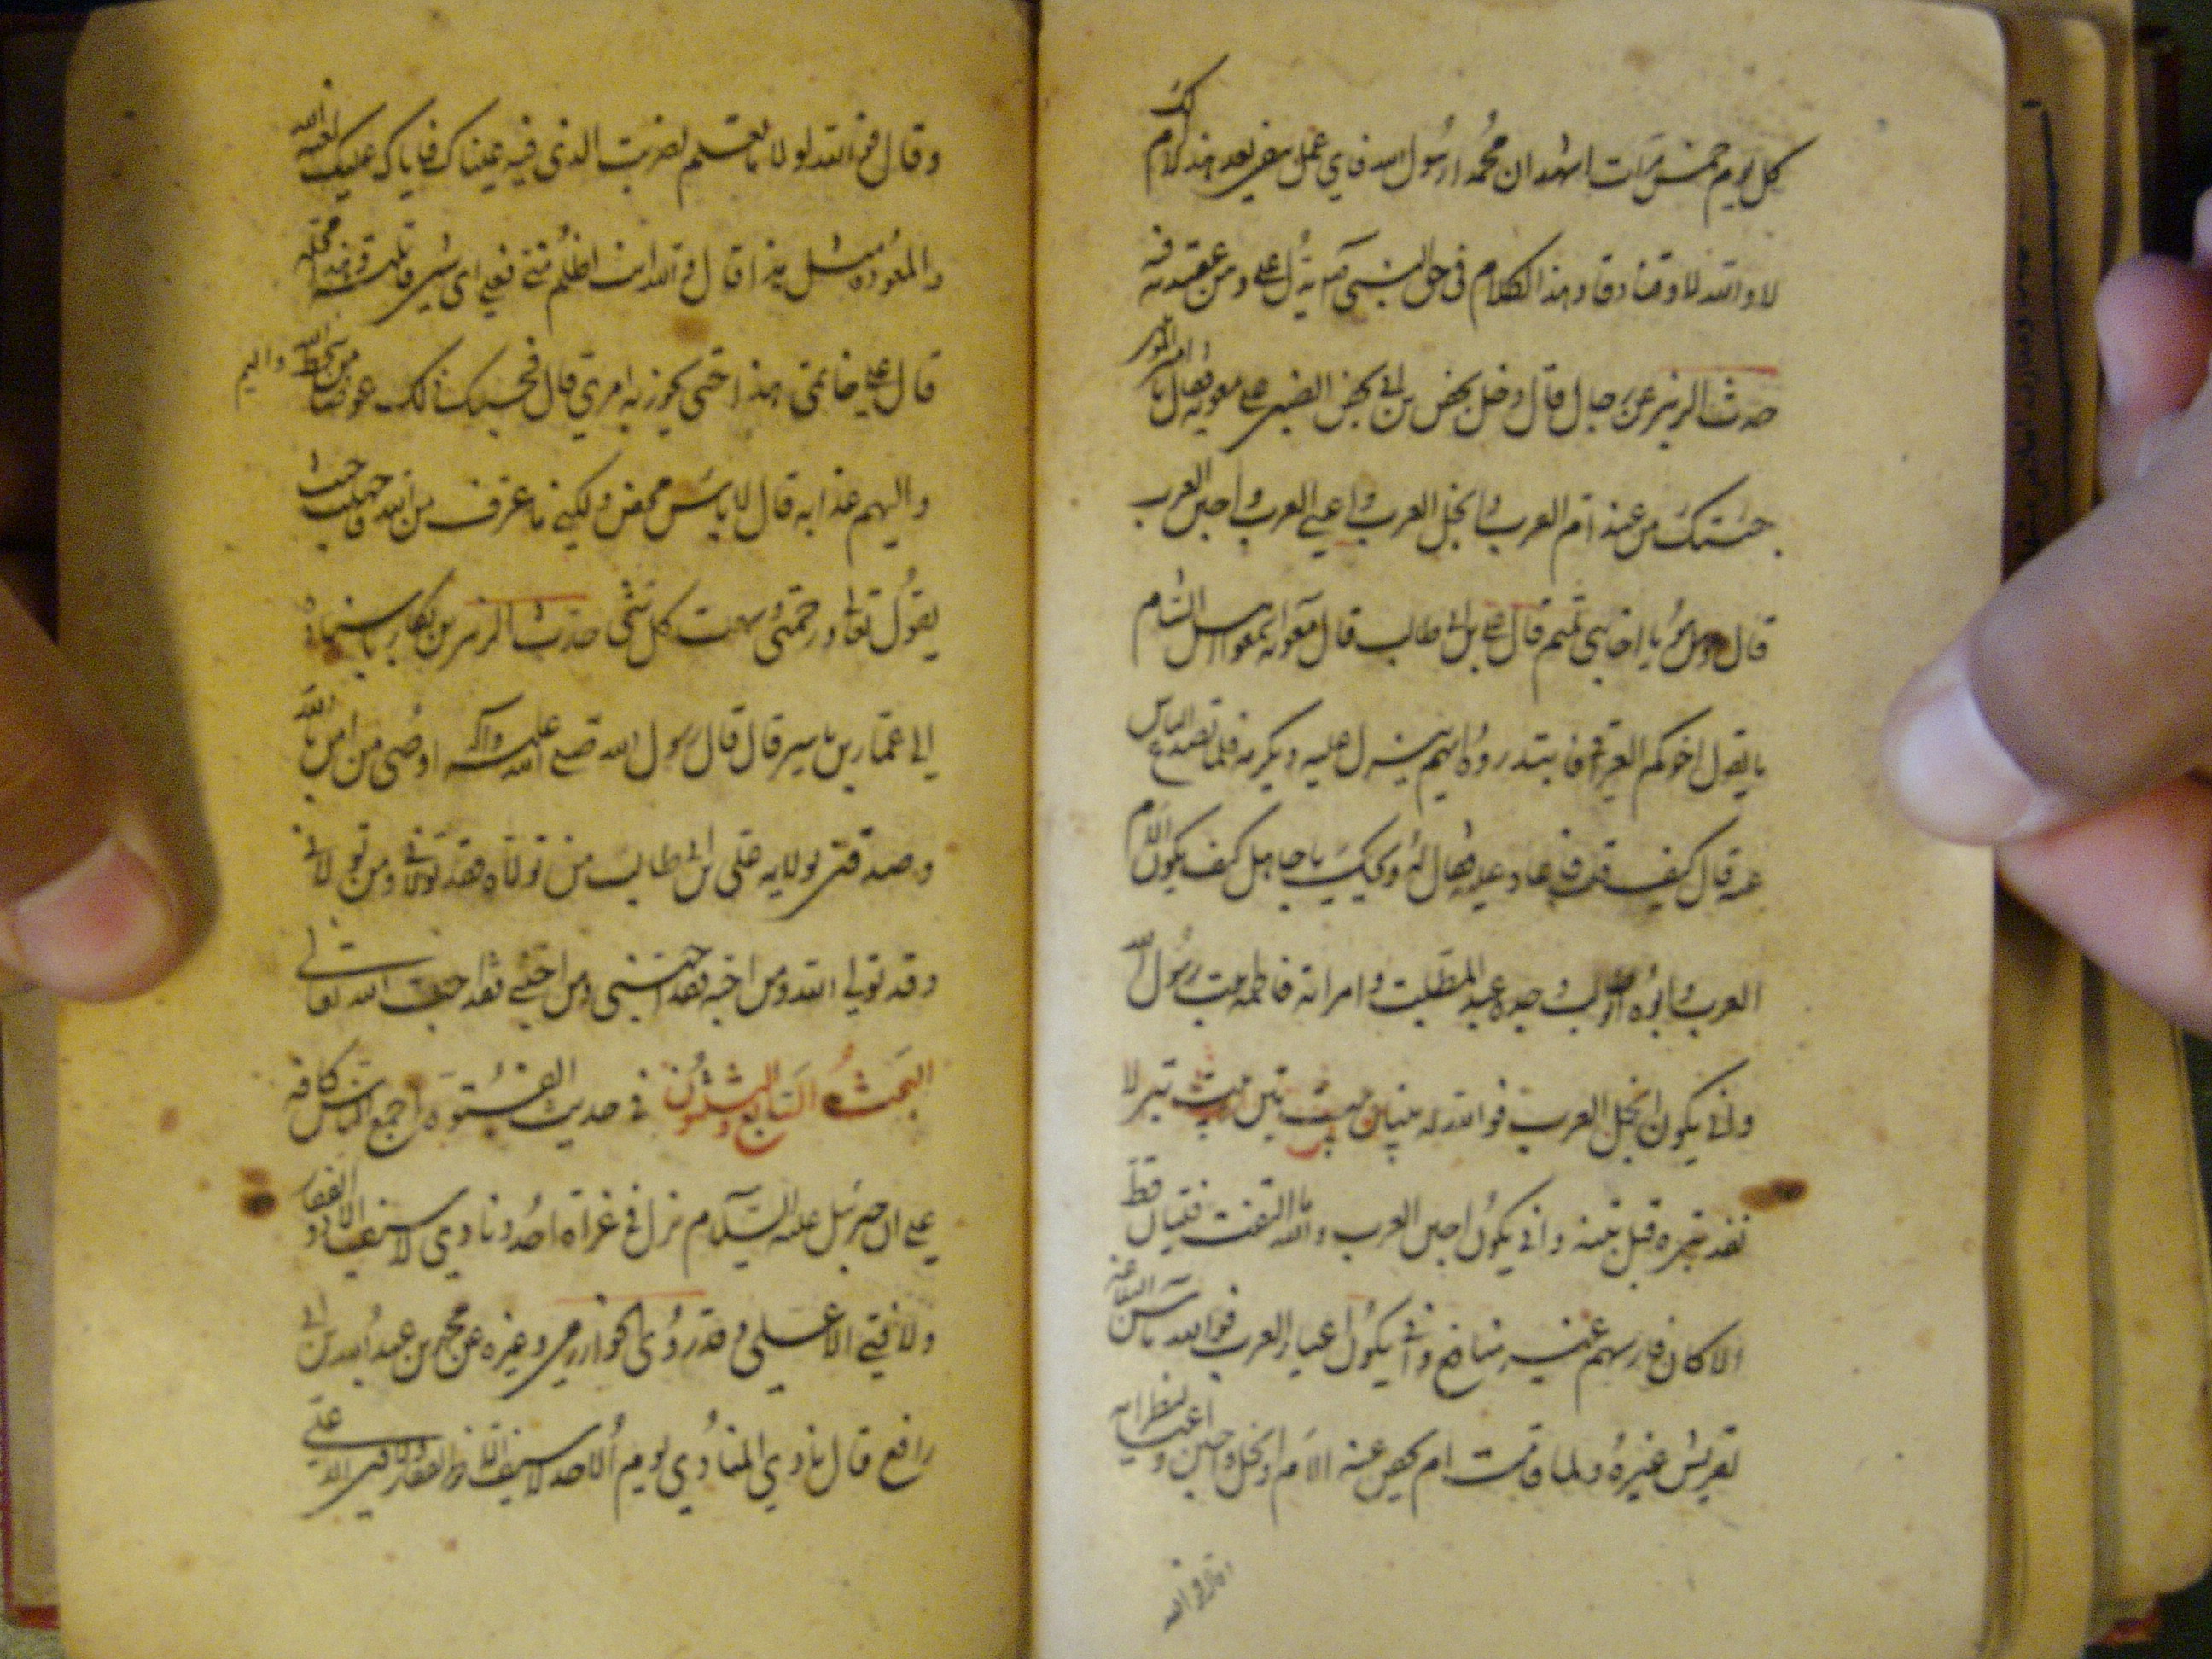 كل يوم خمس مرات اشهد ان محمدا رسول الله فاي عمل يبقى بعد هذا لا ام لك
لا والله الا دفنا دفنا وهذا الكلام في حق النبي يدل على ومن عقيدته فيه
حدث الزبير عن رجال قال دخل محفن بن ابي محفن الضبي على معوية فقال يا امير المؤمنين
جئتك من عند ألأم العرب وابخل العرب واعيى العرب واجبن العرب
قال ومن هو يا اخا بني تميم قال علي بن ابي طالب قال معوية اسمعوا يا اهل الشام
ما يقول اخوكم العراقي فابتدروه ايهم ينزل عليه ويكرمه فلما تصدع الناس
عنه قال كيف قلت فاعاد عليه فقال له ويحك يا جاهل كيف يكون ألأم
العرب وابوه ابو طالب وجده عبد المطلب وامراته فاطمة بنت رسول الله
وانى يكون ابخل العرب فوالله لو له بيتان بيت تبن وبيت تبر لا
نفد تبره قبل تبنه وانى يكون اجبن العرب والله ما التقت فئتان قط
الا كان فارسهم غير مدافع وانى يكون اعيى العرب فوالله ما سن البلاغة
لقريش غيره ولما قامت ام محفن عنه ألأم وابخل واجبن واعيى لبظر امه
وقال فوالله لولا ما تعلم لضربت الذي فيه عيناك فاياك عليك لعنة الله
والعود الى مثل هذا قال والله انت اظلم مني فعلى اي شي قاتلته وهذا محله
قال على خاتمي هذا حتى يجوز به امري قال فحسبك ذلك عوضا من سخط الله
واليم عذابه قال لا يا بن محفن ولكني اعرف من الله ما جهلت حيث
يقول تعالى ورحمتي وسعت كل شي حدث الزبير بن بكار باسناده
الى عمار بن ياسر قال قال رسول الله صلى الله عليه وآله اوصى من امن بالله
وصدقني بولاية علي بن ابي طالب من تولاه فقد تولاني ومن تولاني
فقد تولى الله ومن احبه فقد احبني ومن احبني فقد احب الله تعالى
البحث السابع والعشرون في حديث الفتوة اجمع الناس كافة
على ان جبرئيل عليه السلام نزل في غزاة احد ونادى لا سيف الا ذو الفقار
ولا فتى الا علي وقد روى الخوارزمي وغيره عن محمد بن عبيد الله بن ابي
رافع قال نادى المنادي يوم الاحد لا سيف الا ذو الفقار ولا فتى الا علي